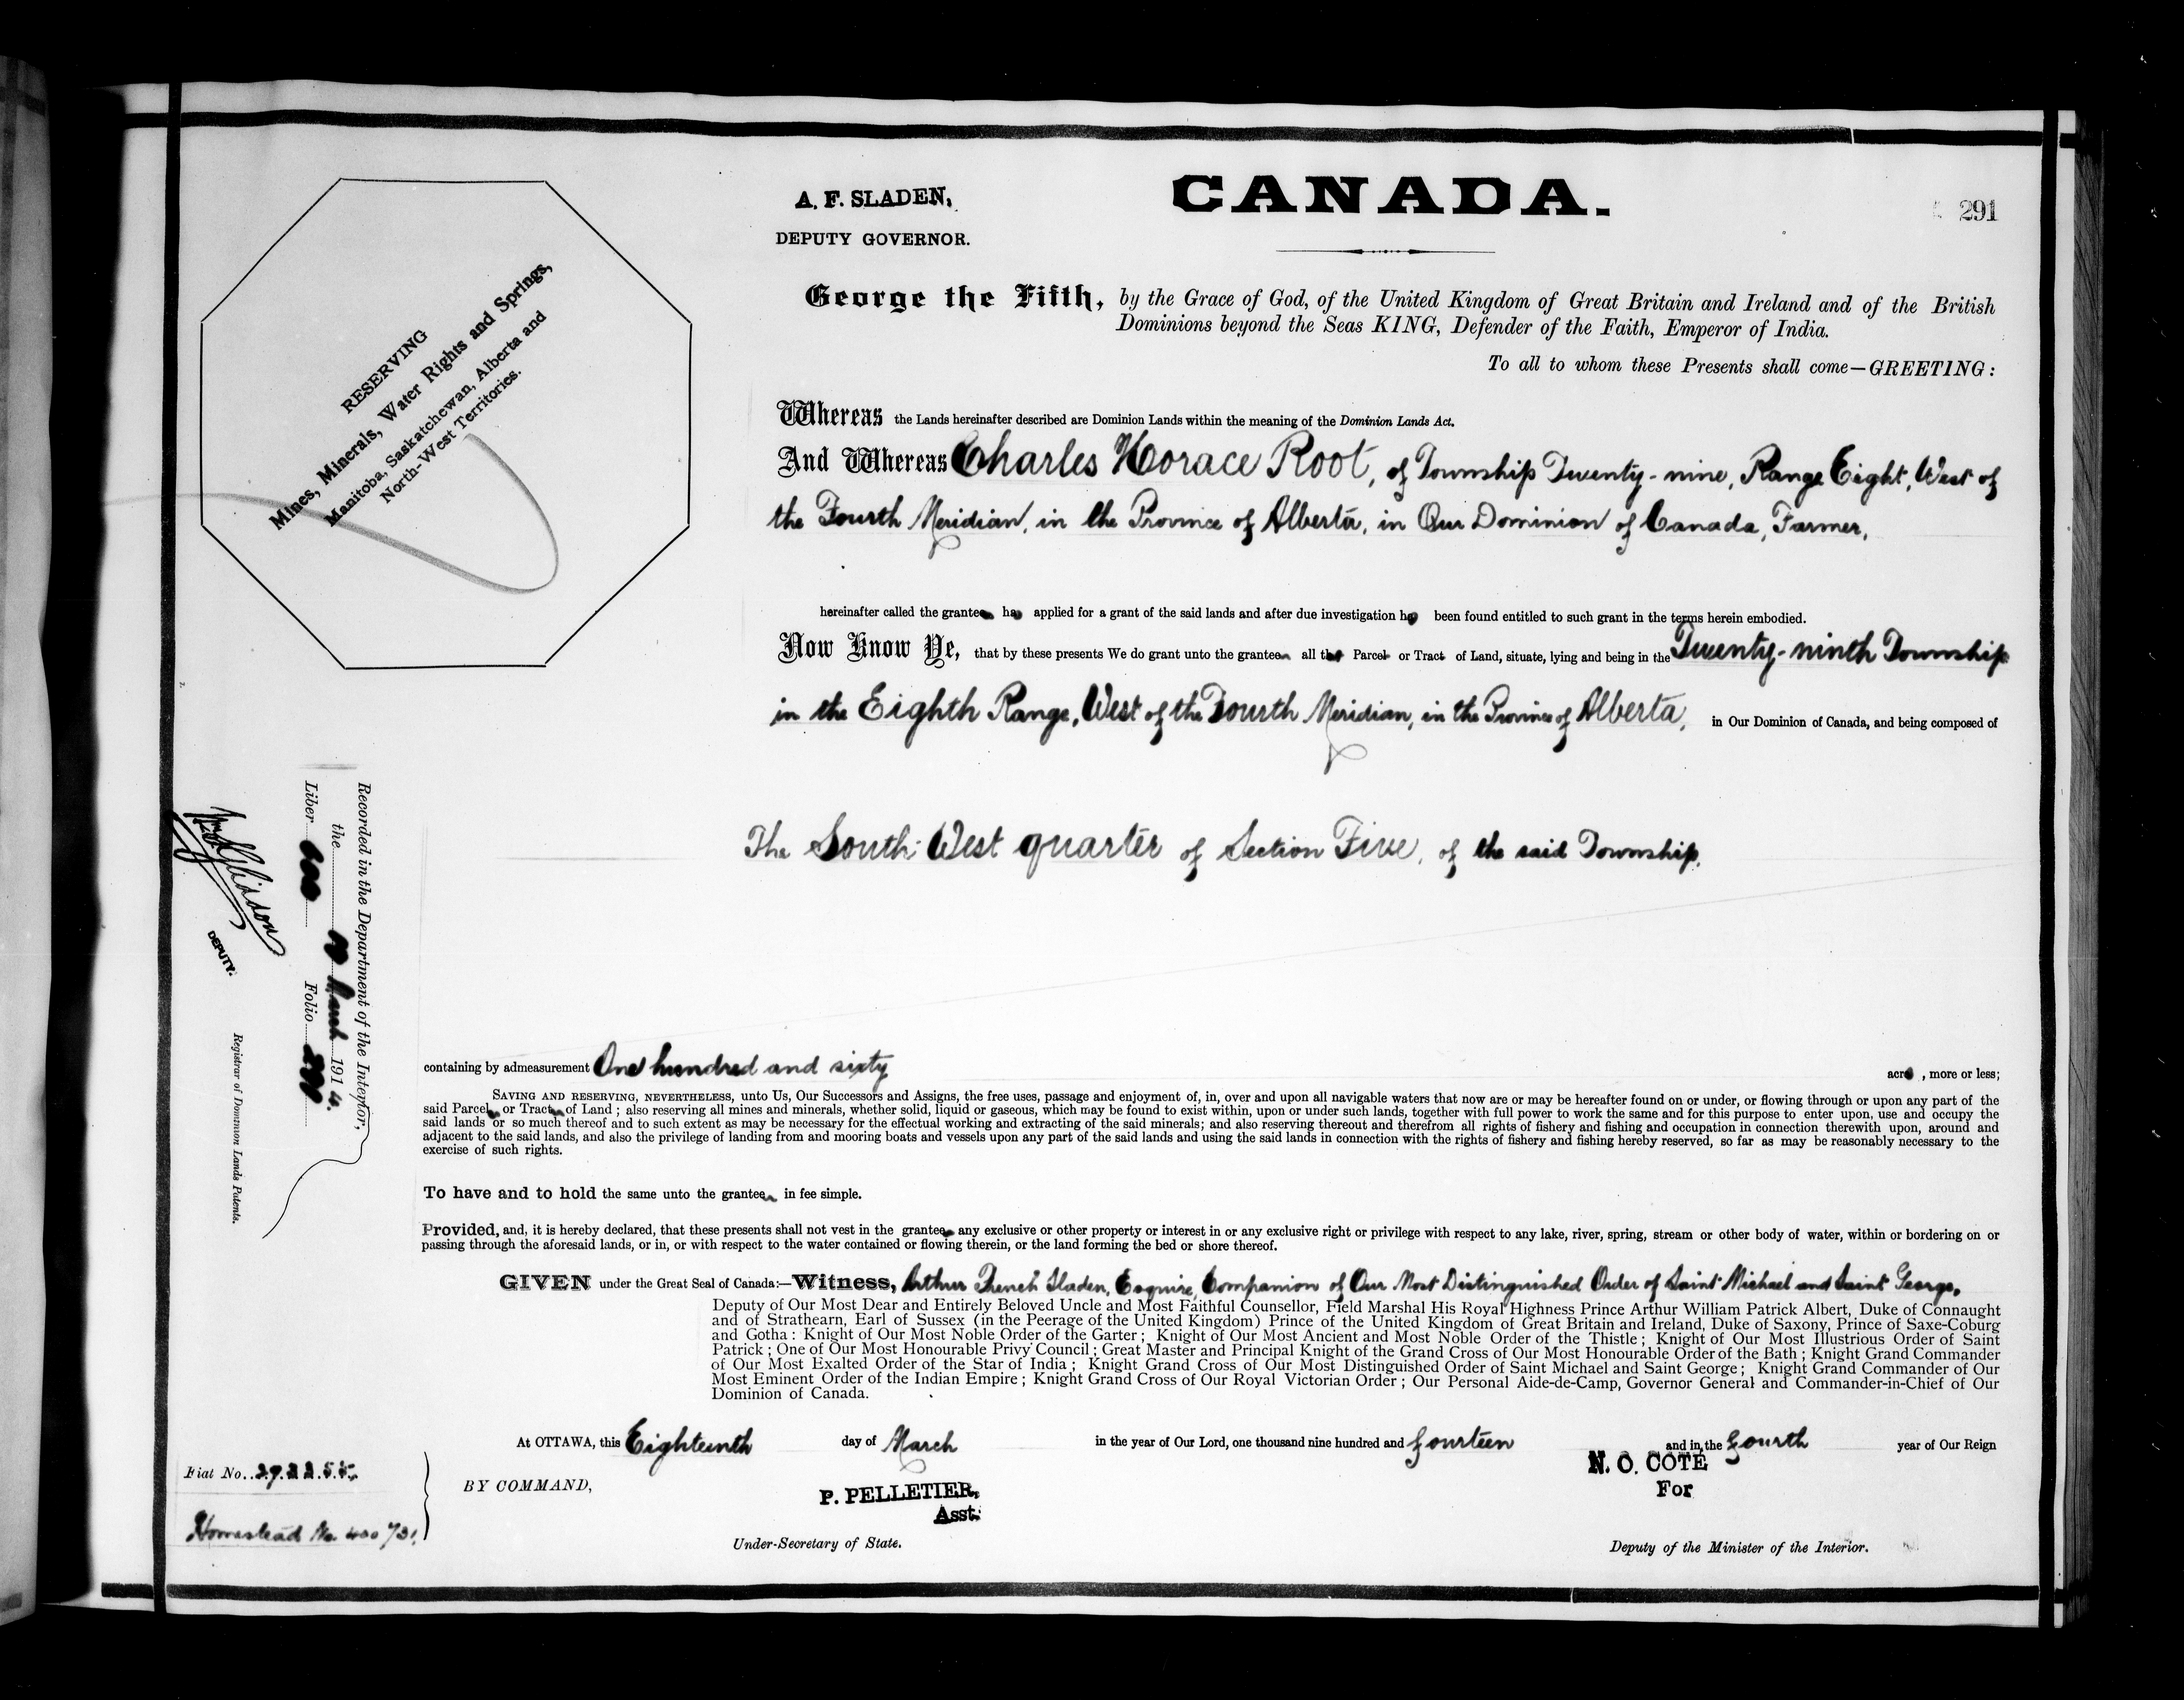 A. F. SLADEN,
DEPUTY GOVERNOR.
CANADA.
291
RESERVING
Mines, Minerals, Water Rights and Springs,
Manitoba, Saskatchewan, Alberta and
North-West Territories.
George the Fifth, by the Grace of God, of the United Kingdom of Great Britain and Ireland and of the British
Dominions beyond the Seas KING, Defender of the Faith, Emperor of India.
To all to whom these Presents shall come—GREETING:
Whereas the Lands hereinafter described are Dominion Lands within the meaning of the Dominion Lands Act.
And Whereas Charles Horace Root, of Township Twenty-nine, Range Eight, West of
the Fourth Meridian, in the Province of Alberta, in Our Dominion of Canada, Farmer,
hereinafter called the grantee ha applied for a grant of the said lands and after due investigation ha been found entitled to such grant in the terms herein embodied.
Now Know Ye, that by these presents We do grant unto the grantee all that Parcel or Tract of Land, situate, lying and being in the Twenty-ninth Township
in the Eighth Range, West of the Fourth Meridian, in the Province of Alberta, in Our Dominion of Canada, and being composed of
The South West quarter of Section Five, of the said Township.
Recorded in the Department of the Interior,
the March 1914.
Liber Folio
DEPUTY.
Registrar of Dominion Lands Patents.
containing by admeasurement One hundred and sixty acre , more or less;
SAVING AND RESERVING, NEVERTHELESS, unto Us, Our Successors and Assigns, the free uses, passage and enjoyment of, in, over and upon all navigable waters that now are or may be hereafter found on or under, or flowing through or upon any part of the
said Parcel or Tract of Land; also reserving all mines and minerals, whether solid, liquid or gaseous, which may be found to exist within, upon or under such lands, together with full power to work the same and for this purpose to enter upon, use and occupy the
said lands or so much thereof and to such extent as may be necessary for the effectual working and extracting of the said minerals; and also reserving thereout and therefrom all rights of fishery and fishing and occupation in connection therewith upon, around and
adjacent to the said lands, and also the privilege of landing from and mooring boats and vessels upon any part of the said lands and using the said lands in connection with the rights of fishery and fishing hereby reserved, so far as may be reasonably necessary to the
exercise of such rights.
To have and to hold the same unto the grantee in fee simple.
Provided, and, it is hereby declared, that these presents shall not vest in the grantee any exclusive or other property or interest in or any exclusive right or privilege with respect to any lake, river, spring, stream or other body of water, within or bordering on or
passing through the aforesaid lands, or in, or with respect to the water contained or flowing therein, or the land forming the bed or shore thereof.
GIVEN under the Great Seal of Canada:—Witness, Arthur French Sladen, Esquire, Companion of Our Most Distinguished Order of Saint Michael and Saint George,
Deputy of Our Most Dear and Entirely Beloved Uncle and Most Faithful Counsellor, Field Marshal His Royal Highness Prince Arthur William Patrick Albert, Duke of Connaught
and of Strathearn, Earl of Sussex (in the Peerage of the United Kingdom) Prince of the United Kingdom of Great Britain and Ireland, Duke of Saxony, Prince of Saxe-Coburg
and Gotha: Knight of Our Most Noble Order of the Garter; Knight of Our Most Ancient and Most Noble Order of the Thistle; Knight of Our Most Illustrious Order of Saint
Patrick; One of Our Most Honourable Privy Council; Great Master and Principal Knight of the Grand Cross of Our Most Honourable Order of the Bath; Knight Grand Commander
of Our Most Exalted Order of the Star of India; Knight Grand Cross of Our Most Distinguished Order of Saint Michael and Saint George; Knight Grand Commander of Our
Most Eminent Order of the Indian Empire; Knight Grand Cross of Our Royal Victorian Order; Our Personal Aide-de-Camp, Governor General and Commander-in-Chief of Our
Dominion of Canada.
At OTTAWA, this Eighteenth day of March in the year of Our Lord, one thousand nine hundred and fourteen and in the fourth year of Our Reign
Fiat No. 292255
Homestead No. 400731
BY COMMAND,
P. PELLETIER,
Asst.
Under-Secretary of State.
N. O. COTÉ
For
Deputy of the Minister of the Interior.